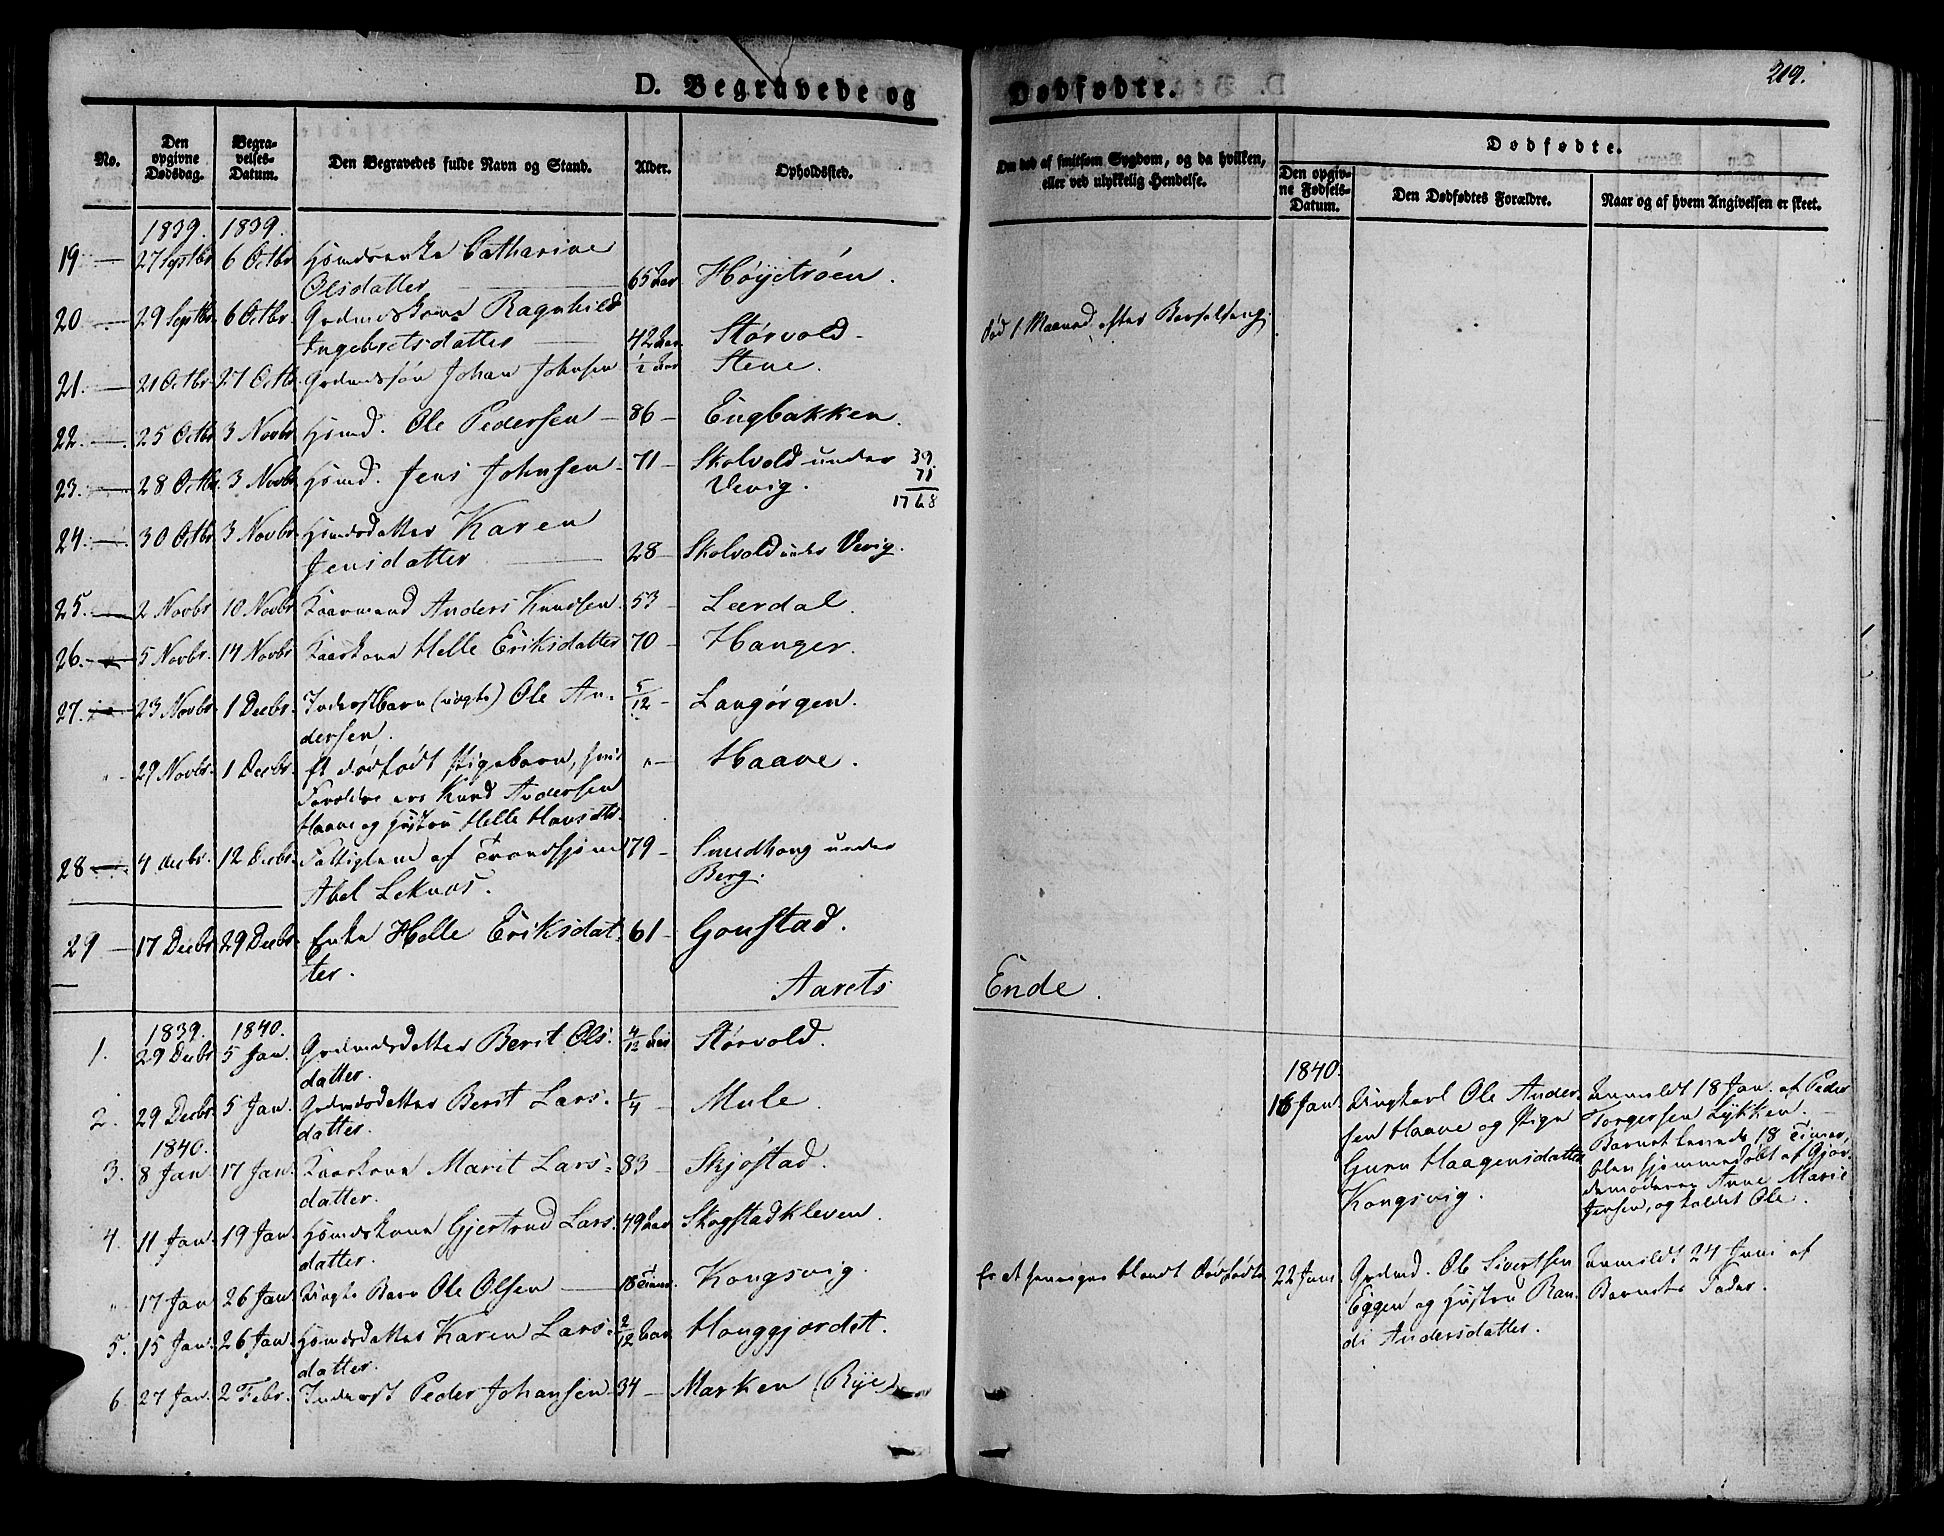 219.
D. Begravede og Dødfødte.
No.
Den opgivne Dødsdag.
Begravelses-Datum.
Den Begravedes fulde Navn og Stand.
Alder.
Opholdssted.
Om død af smitsom Sygdom, og da hvilken, eller ved ulykkelig Hendelse.
Dødfødte.
Den opgivne Fødsels-Datum.
Den Dødfødtes Forældre.
Naar og af hvem Angivelsen er skeet.
1839. 1839.
19 27 Septbr 6 Octbr Huusmdsenke Catharine
Olsdatter 65 Aar Høystrøen.
20 29 Septbr. 6 Octbr. Grdmdskone Ragnhild
Ingebretsdatter 42 Aar Størvold død 1 Maaned efter Barselseng.
21. 21 Octbr. 27 Octbr. Grdmdssøn Johan Johnsen 1/2 Aar Stene.
22. 25 Octbr. 3 Novbr. Huusmd. Ole Pedersen 86 Engbakken.
23. 28 Octbr. 3 Novbr. Huusmd. Jens Johnsen 71 Skolvold under 39
Vevig. 71
1768
24. 30 Octbr. 3 Novbr. Huusmdsdatter Karen
Jensdatter 28 Skolvold under Vevig.
25. 2 Novbr. 10 Novbr. Kaarmand Anders Knudsen. 53 Leerdal.
26. 5 Novbr. 14 Novbr. Kaarkone Helle Eriksdatter 70 Hanger.
27. 23 Novbr. 1 Decbr. Inderstbarn (uægte) Ole An- 5/12 Langørgen.
dersen.
29 Novbr. 1 Decbr. Et dødfødt Pigebarn, hvis " Haave.
Forældre ere Knud Andersen
Haave og Hustru Helle Hansdtr.
28 4 Decbr. 12 Decbr. Fattiglem af Trondhjem 79 Smedhaug under
Abel Leknæs. Berg.
29 17 Decbr. 29 Decbr. Enke Helle Eriksdat- 61 Gonstad.
ter.
Aarets Ende.
1839. 1840.
1. 29 Decbr. 5 Jan. Grdmdsdatter Berit Ols- 4/12 Aar Størvold.
datter.
2. 29 Decbr. 5 Jan. Grdmdsdatter Berit Lars- 1/4 Mule.
datter.
1840.
3. 8 Jan 17 Jan. Kaarkone Marit Lars- 83 Skjøstad.
datter.
4. 11 Jan. 19 Jan. Huusmdskone Gjertrud Lars- 49 Aar Skogstadkleven.
datter.
" 17 Jan 26 Jan. Uægte Barn Ole Olsen 18 Timer. Kongsvig. Er at henregne blandt Dødfødte
5. 15 Jan. 26 Jan. Huusmdsdatter Karen Lars- 2/12 Aar Hauggjærdet.
datter.
6. 27 Jan. 2 Febr. Inderst Peder Johansen 34 Marken (Rye)
1840.
16 Jan. Ungkarl Ole Ander-
sen Haave og Pige
Guru Haagensdatter
Kongsvig.
Anmeldt 18 Jan. af Peder
Torgersen Lykken.
Barnet levede 18 Timer,
blev hjemmedøbt af Gjor-
demoderen Anne Marie
Jensen, og kaldet Ole.
22 Juni Grdmd. Ole Sivertsen
Eggen og Hustru Ran-
di Andersdatter.
Anmeldt 24 Juni af
Barnets Fader.